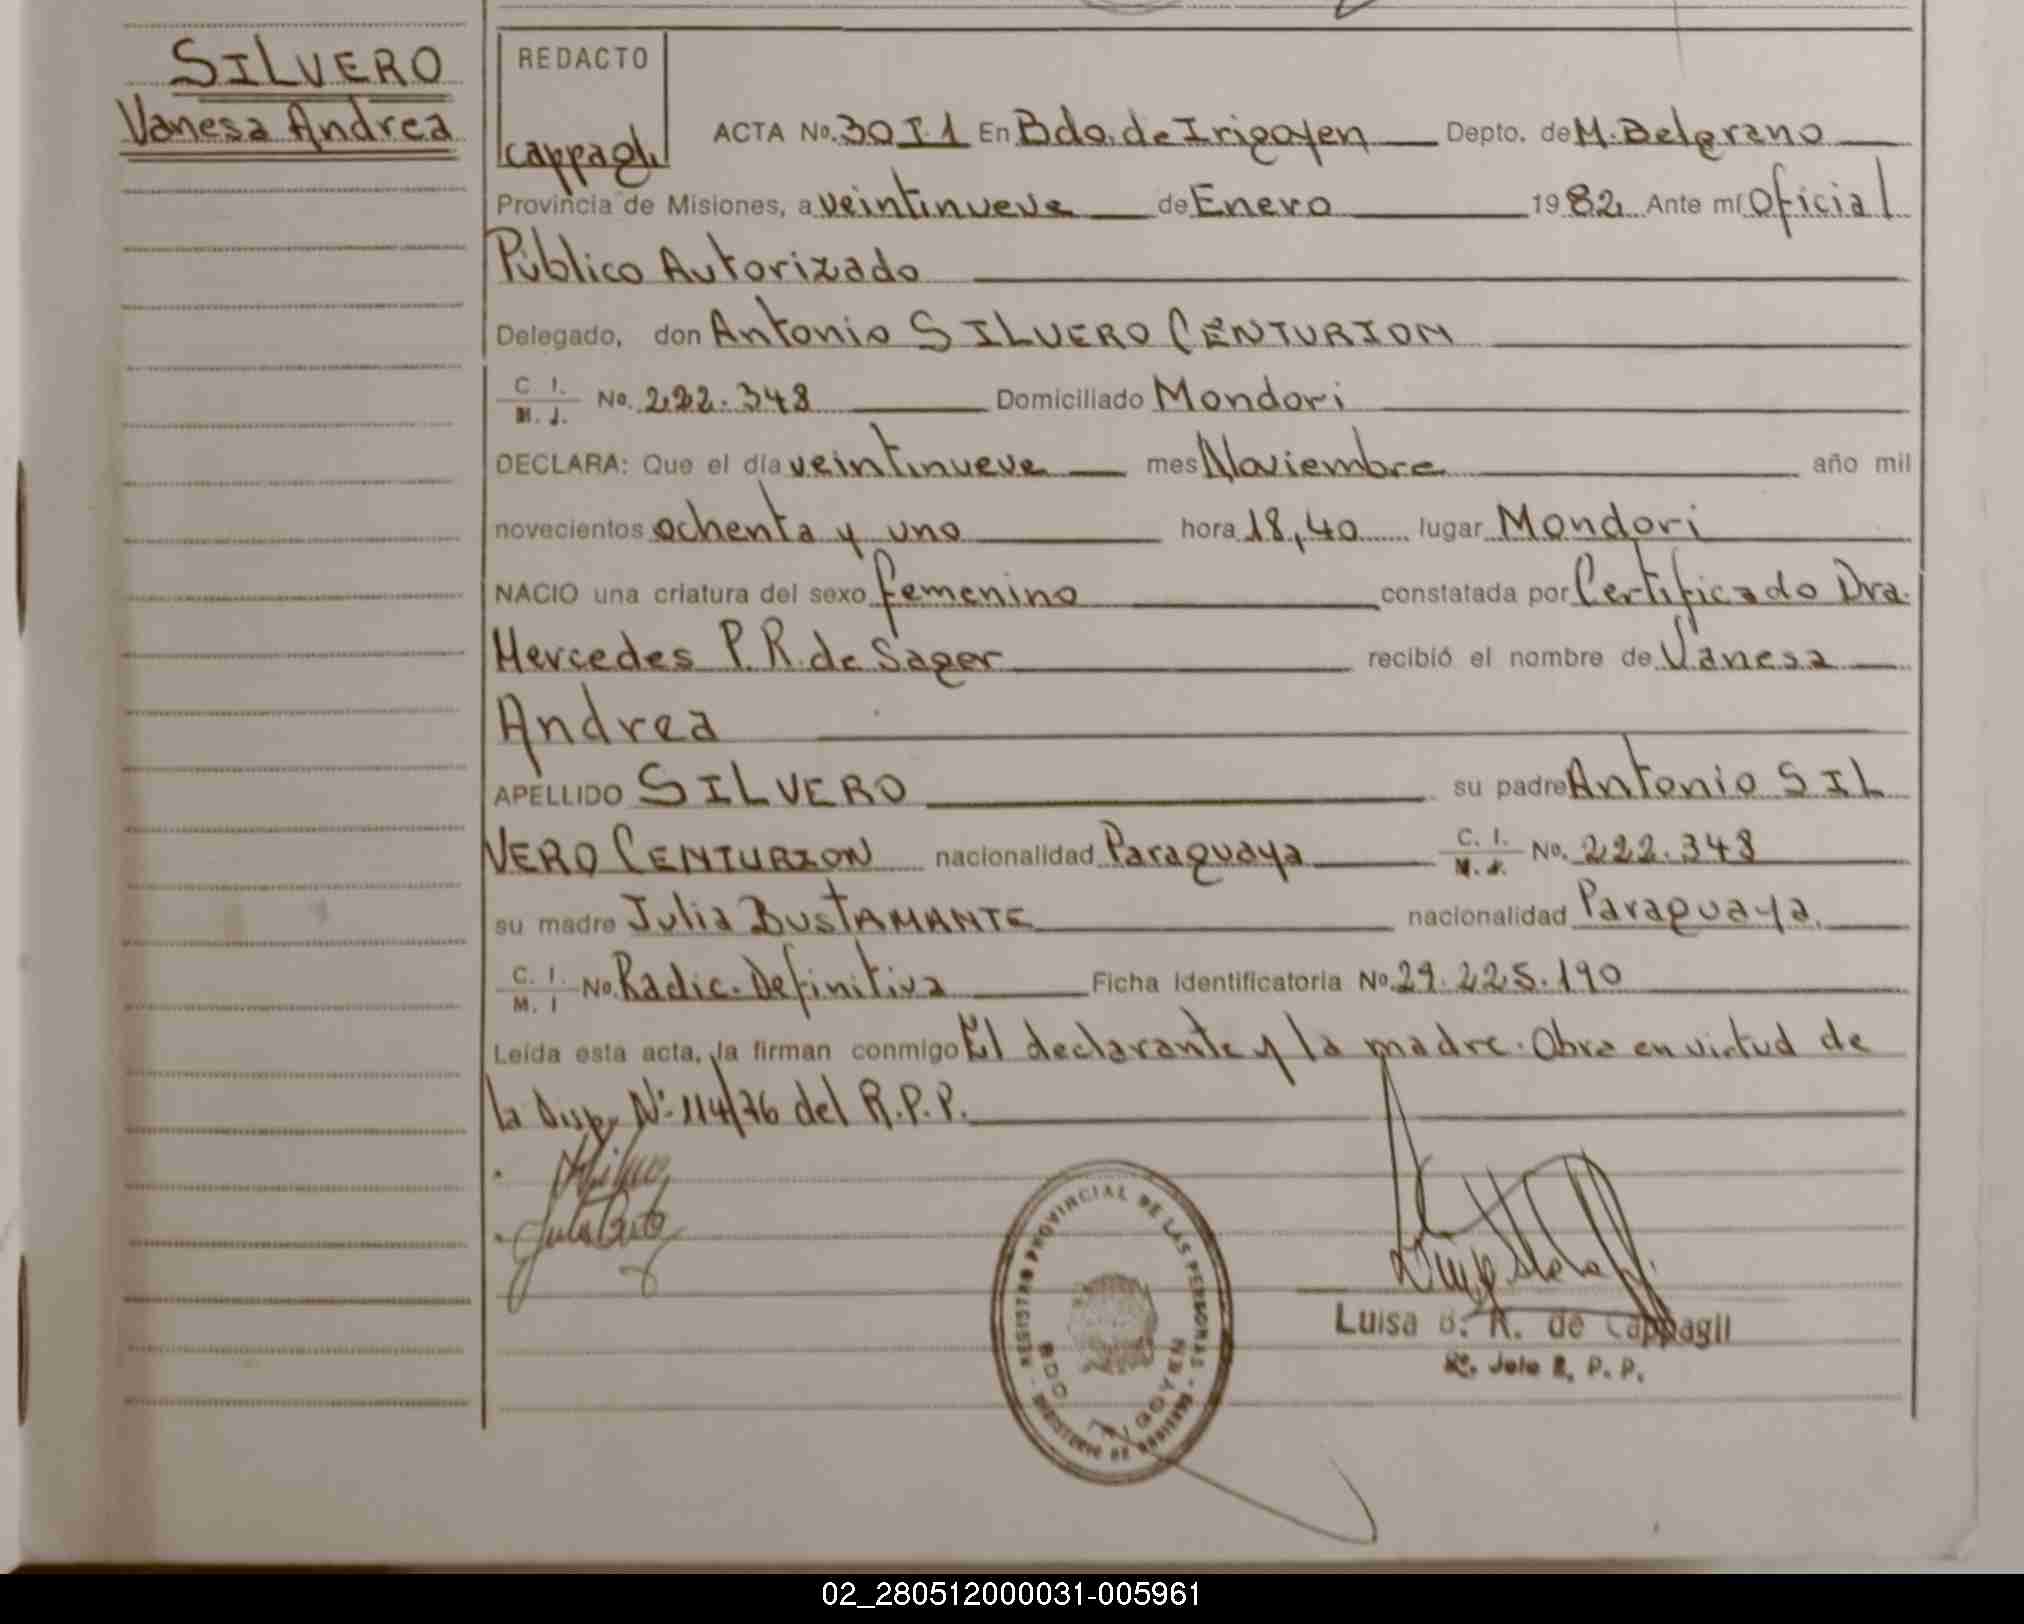 SILVERO
Vanesa Andrea
REDACTO
cappagli
ACTA No. 30 I 1 En Bdo. de Irigoyen Depto. de M. Belgrano
Provincia de Misiones, a veintinueve de Enero 1982 Ante mí Oficial
Público Autorizado
Delegado, don Antonio SILVERO CENTURION
C. I. / M. I. No. 222.348 Domiciliado Mondori
DECLARA: Que el día veintinueve mes Noviembre año mil
novecientos ochenta y uno hora 18,40 lugar Mondori
NACIO una criatura del sexo femenino constatada por Certificado Dra.
Mercedes P. R. de Sager recibió el nombre de Vanesa
Andrea
APELLIDO SILVERO su padre Antonio SIL
VERO CENTURION nacionalidad Paraguaya C. I. / M. I. No. 222.348
su madre Julia BUSTAMANTE nacionalidad Paraguaya.
C. I. / M. I No. Radic. Definitiva Ficha Identificatoria No. 29.225.190
Leída esta acta, la firman conmigo El declarante y la madre. Obra en virtud de
la Disp. Nº 114/76 del R.P.P.
REGISTRO PROVINCIAL DE LAS PERSONAS
BDO IRIGOYEN
MINISTERIO DE GOBIERNO
Luisa B. R. de Cappagli
Jefe R. P. P.
02_280512000031-005961